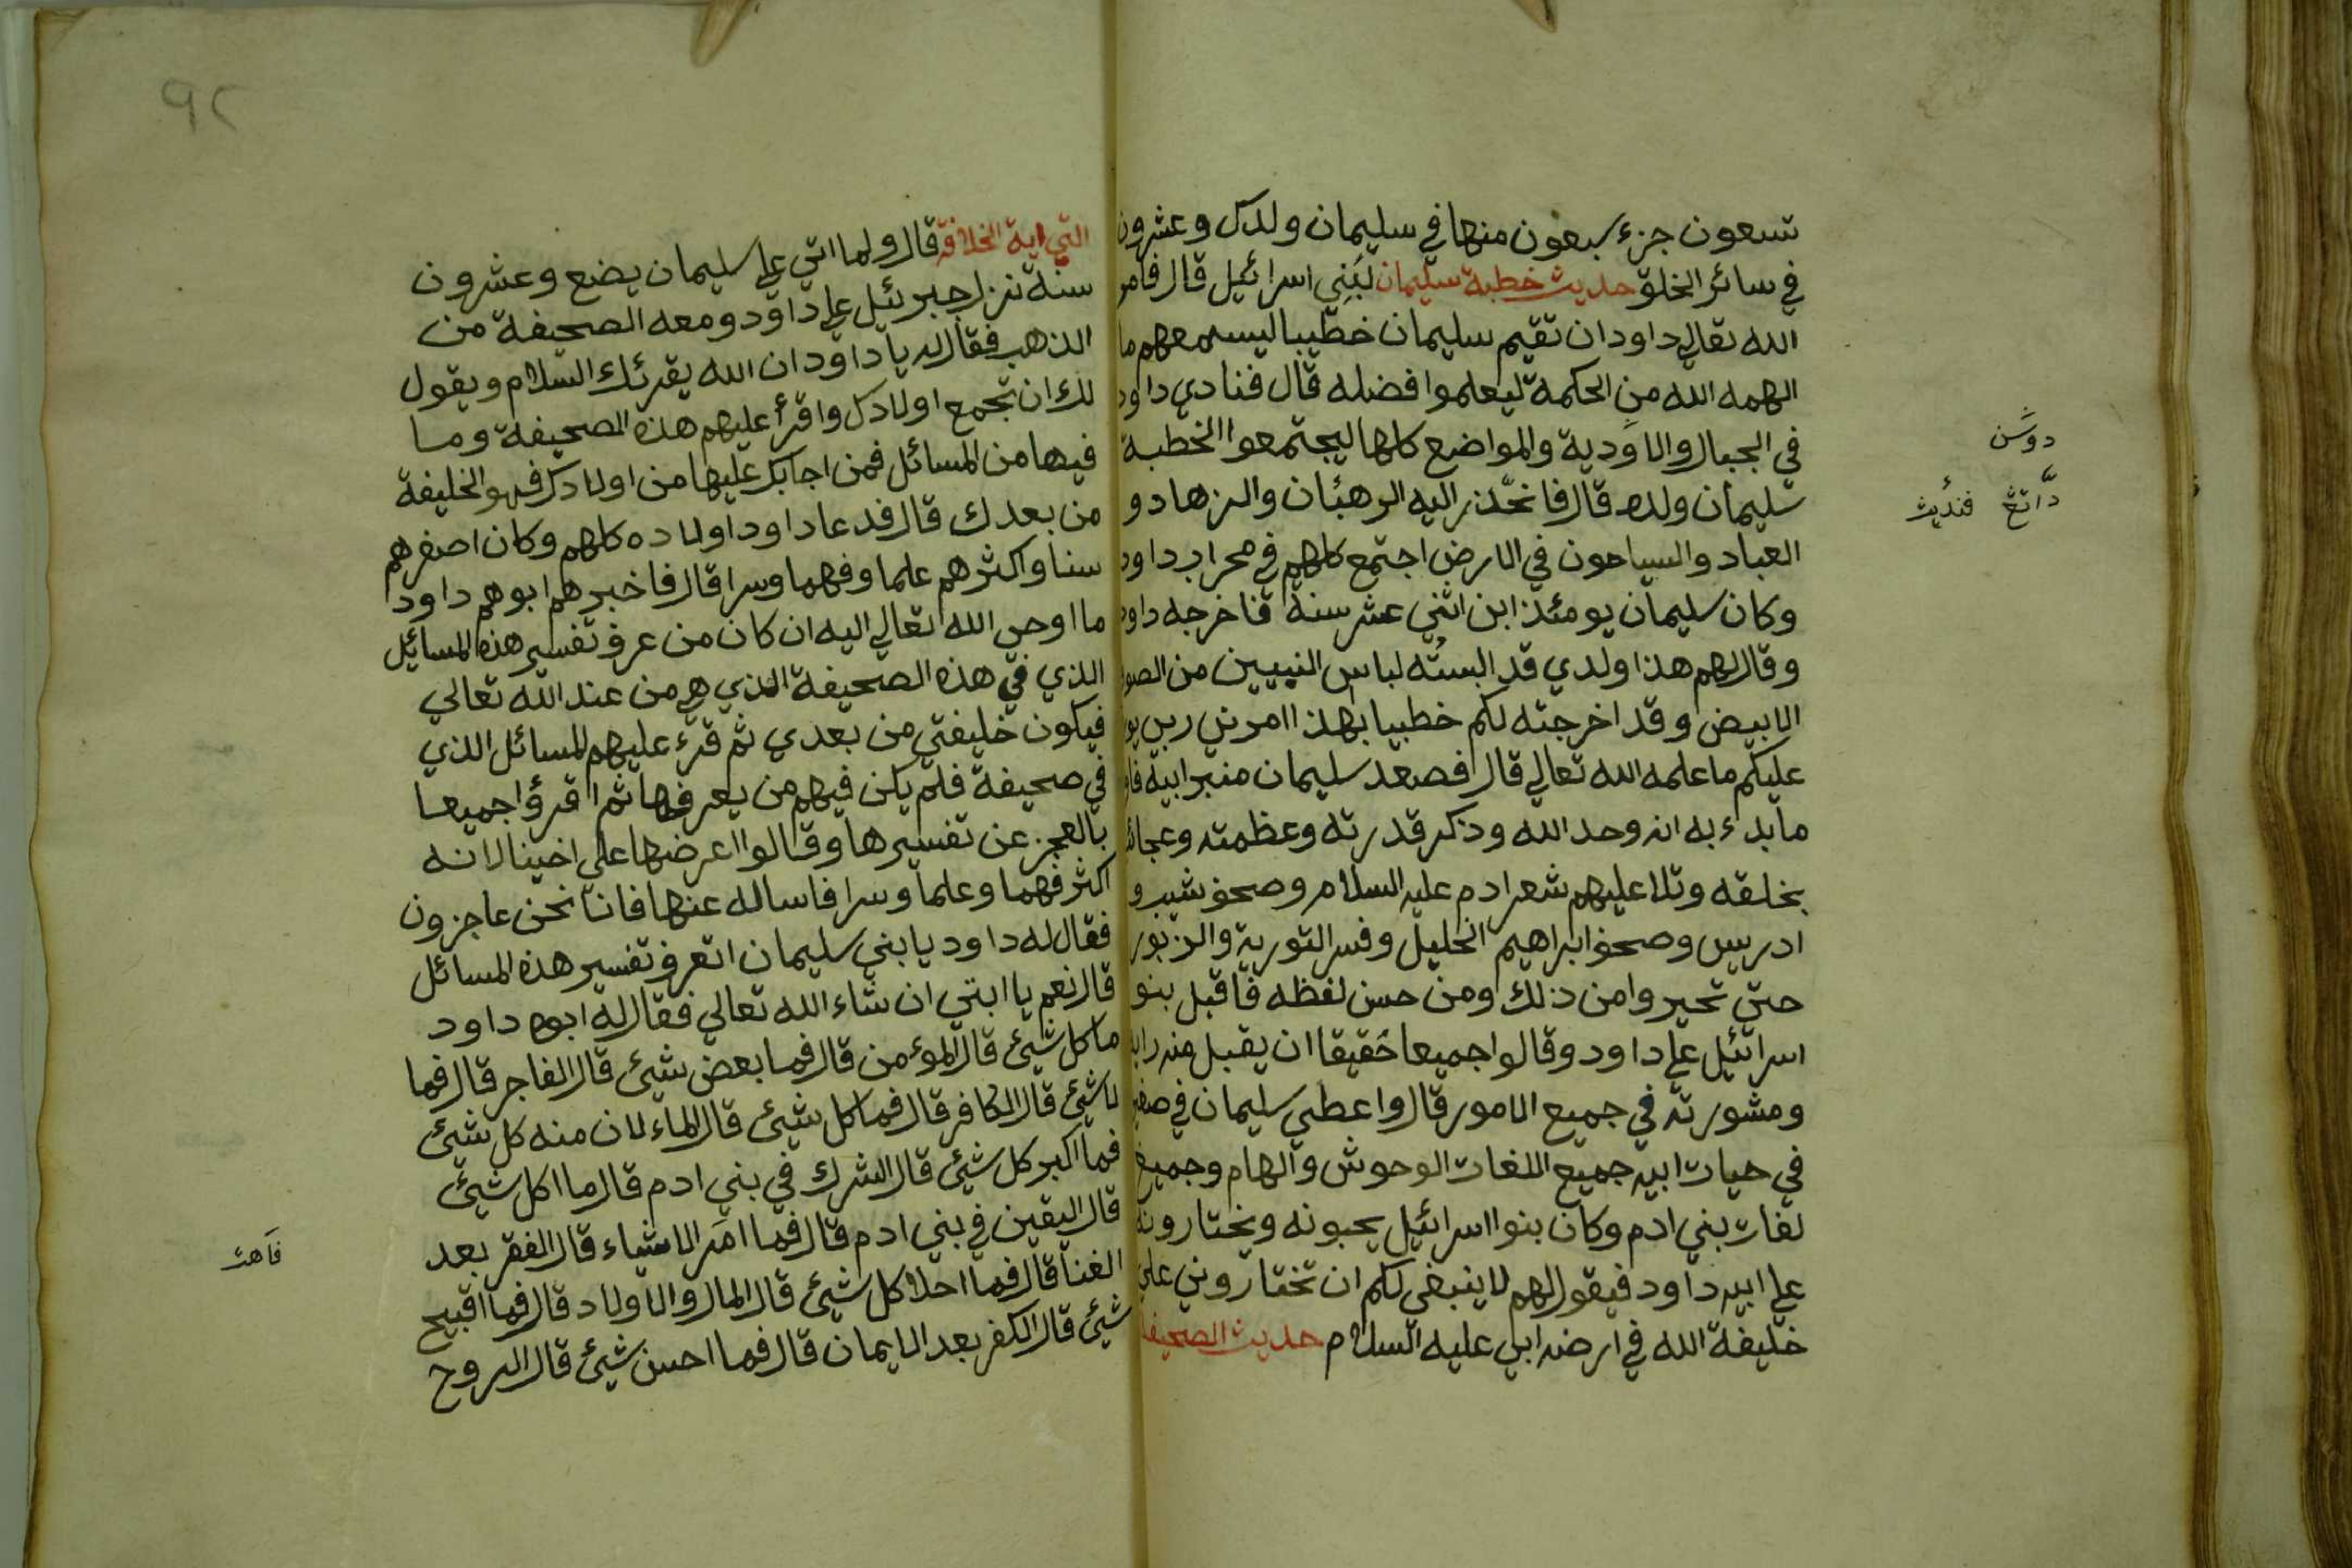 تسعون جزء سبعون منها في سليمان ولدك وعشرون
في سائر الخلق حديث خطبة سليمان لبني اسرائيل قال فامر
الله تعالي داود ان تقيم سليمان خطيبا ليسمعهم ما
الهمه الله من الحكمة ليعلموا فضله قال فنادي داود
في الجبال والاودية والمواضع كلها ليجتمعوا الخطبة
سليمان ولده قال فانحذر اليه الرهبان والزهاد و
العباد والسياحون في الارض اجتمع كلهم في محراب داود
وكان سليمان يومئذ ابن اثني عشر سنة فاخرجه داود
وقال لهم هذا ولدي قد البسته لباس النبيين من الصوف
الابيض وقد اخرجته لكم خطبيا بهذا امرني ربي
عليكم ما علمه الله تعالي قال فصعد سليمان منبر ابيه
ما بدء به انه وحد الله وذكر قدرته وعظمته وعجائب
بخلقه وتلا عليهم شعر ادم عليه السلام وصحف شيث و
ادريس وصحف ابراهيم الخليل وفسر التورية والزبور
حتي تحيروا من ذلك ومن حسن لفظه فاقبل بنو
اسرائيل علي داود وقالوا جميعا حقيقا ان يقبل منه
ومشورته في جميع الامور قال واعطي سليمان في صغره
في حيات ابيه جميع اللغات الوحوش والهام وجميع
لغات بني ادم وكان بنوا اسرائيل يحبونه ويختارونه
علي ابيه داود فيقول لهم لا ينبغي لكم ان تختاروني علي
خليفة الله في ارضه ابي عليه السلام حديث الصحيفة
دوسن
داتغ فنديث
٩٢
التي اية الخلافة قال ولما اتي علي سليمان بضع وعشرون
سنة نزل جبرئيل علي داود ومعه الصحيفة من
الذهب فقال له يا داود ان الله يقرئك السلام ويقول
لك ان تجمع اولادك واقرأ عليهم هذه الصحيفة وما
فيها من المسائل فمن اجابك عليها من اولادك فهو الخليفة
من بعدك قال فدعا داود اولاده كلهم وكان اصغرهم
سنا واكثرهم علما وفهما وسرا قال فاخبرهم ابوهم داود
ما اوحي الله تعالي اليه ان كان من عرف تفسير هذه المسائيل
الذي في هذه الصحيفة الذي هي من عند الله تعالي
فيكون خليفتي من بعدي ثم قرء عليهم المسائل الذي
في صحيفة فلم يكن فيهم من يعرفها ثم اقرؤا جميعا
بالعجز عن تفسيرها وقالوا اعرضها علي اخينا لانه
اكثر فهما وعلما وسرا فاساله عنها فاننا نحن عاجزون
فقال له داود يا بني سليمان اتعرف تفسير هذه المسائل
قال نعم يا ابتي ان شاء الله تعالي فقال له ابوه داود
ما كل شيئ قال المؤمن قال فما بعض شيئ قال الفاجر قال فما
لا شيئ قال الكافر قال فما كل شيئ قال الماء لان منه كل شيئ
فما اكبر كل شيئ قال الشرك في بني ادم قال ما اكل شيئ
قال اليقين في بني ادم قال فما امر الاشياء قال الفقر بعد
الغنا قال فما احلا كل شيئ قال المال والاولاد قال فما اقبيح
شيئ قال الكفر بعد الايمان قال فما احسن شيئ قال الروح
فاهت